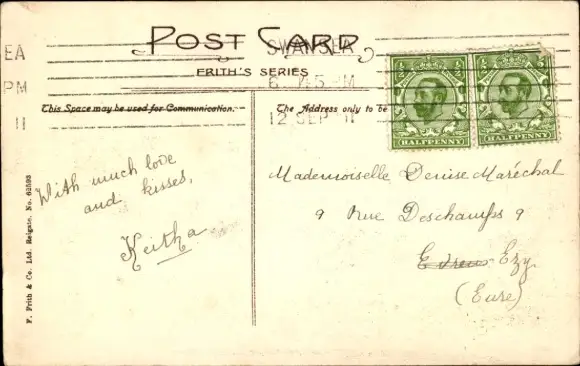 POST CARD
FRITH'S SERIES
EA
PM
11
SWANSEA
6 45 PM
12 SEP 11
This Space may be used for Communication.
The Address only to be
½ ½
HALFPENNY
½ ½
HALFPENNY
With much love
and kisses,
Keitha
Mademoiselle Denise Maréchal
9 Rue Deschamps 9
Ezy
(Eure)
F. Frith & Co. Ltd. Reigate. No. 62593